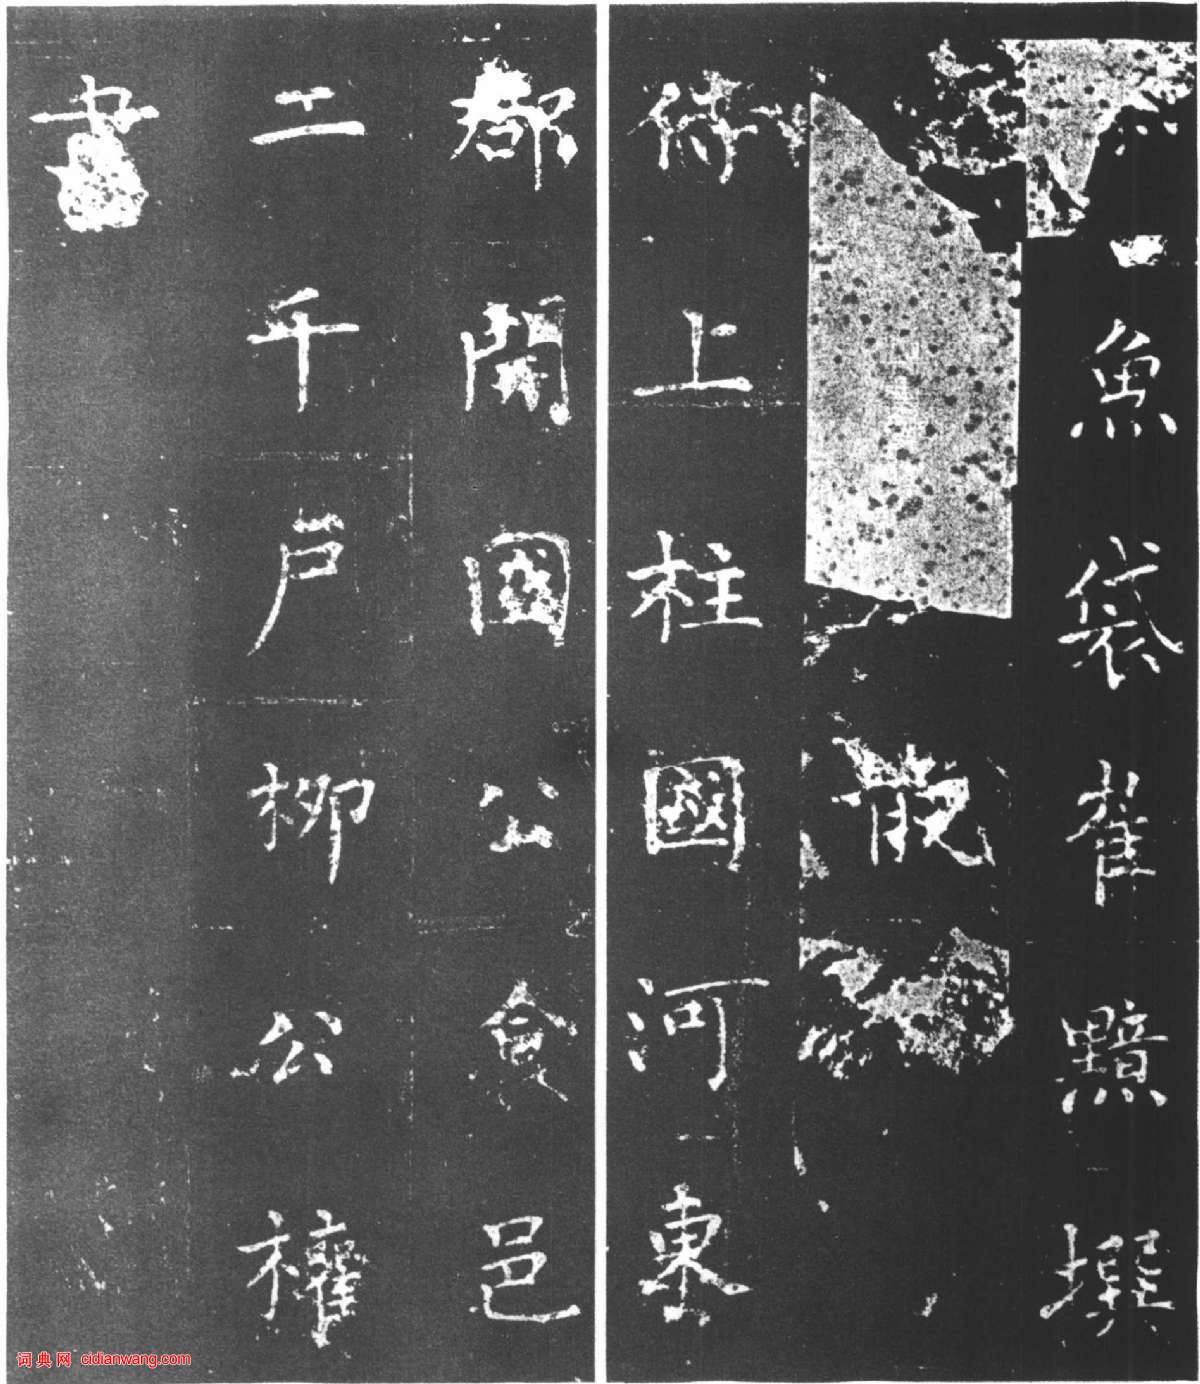 魚袋崔黯撰
散
侍上柱國河東
郡開國公食邑
二千戶柳公權
書
词典网 cidianwang.com